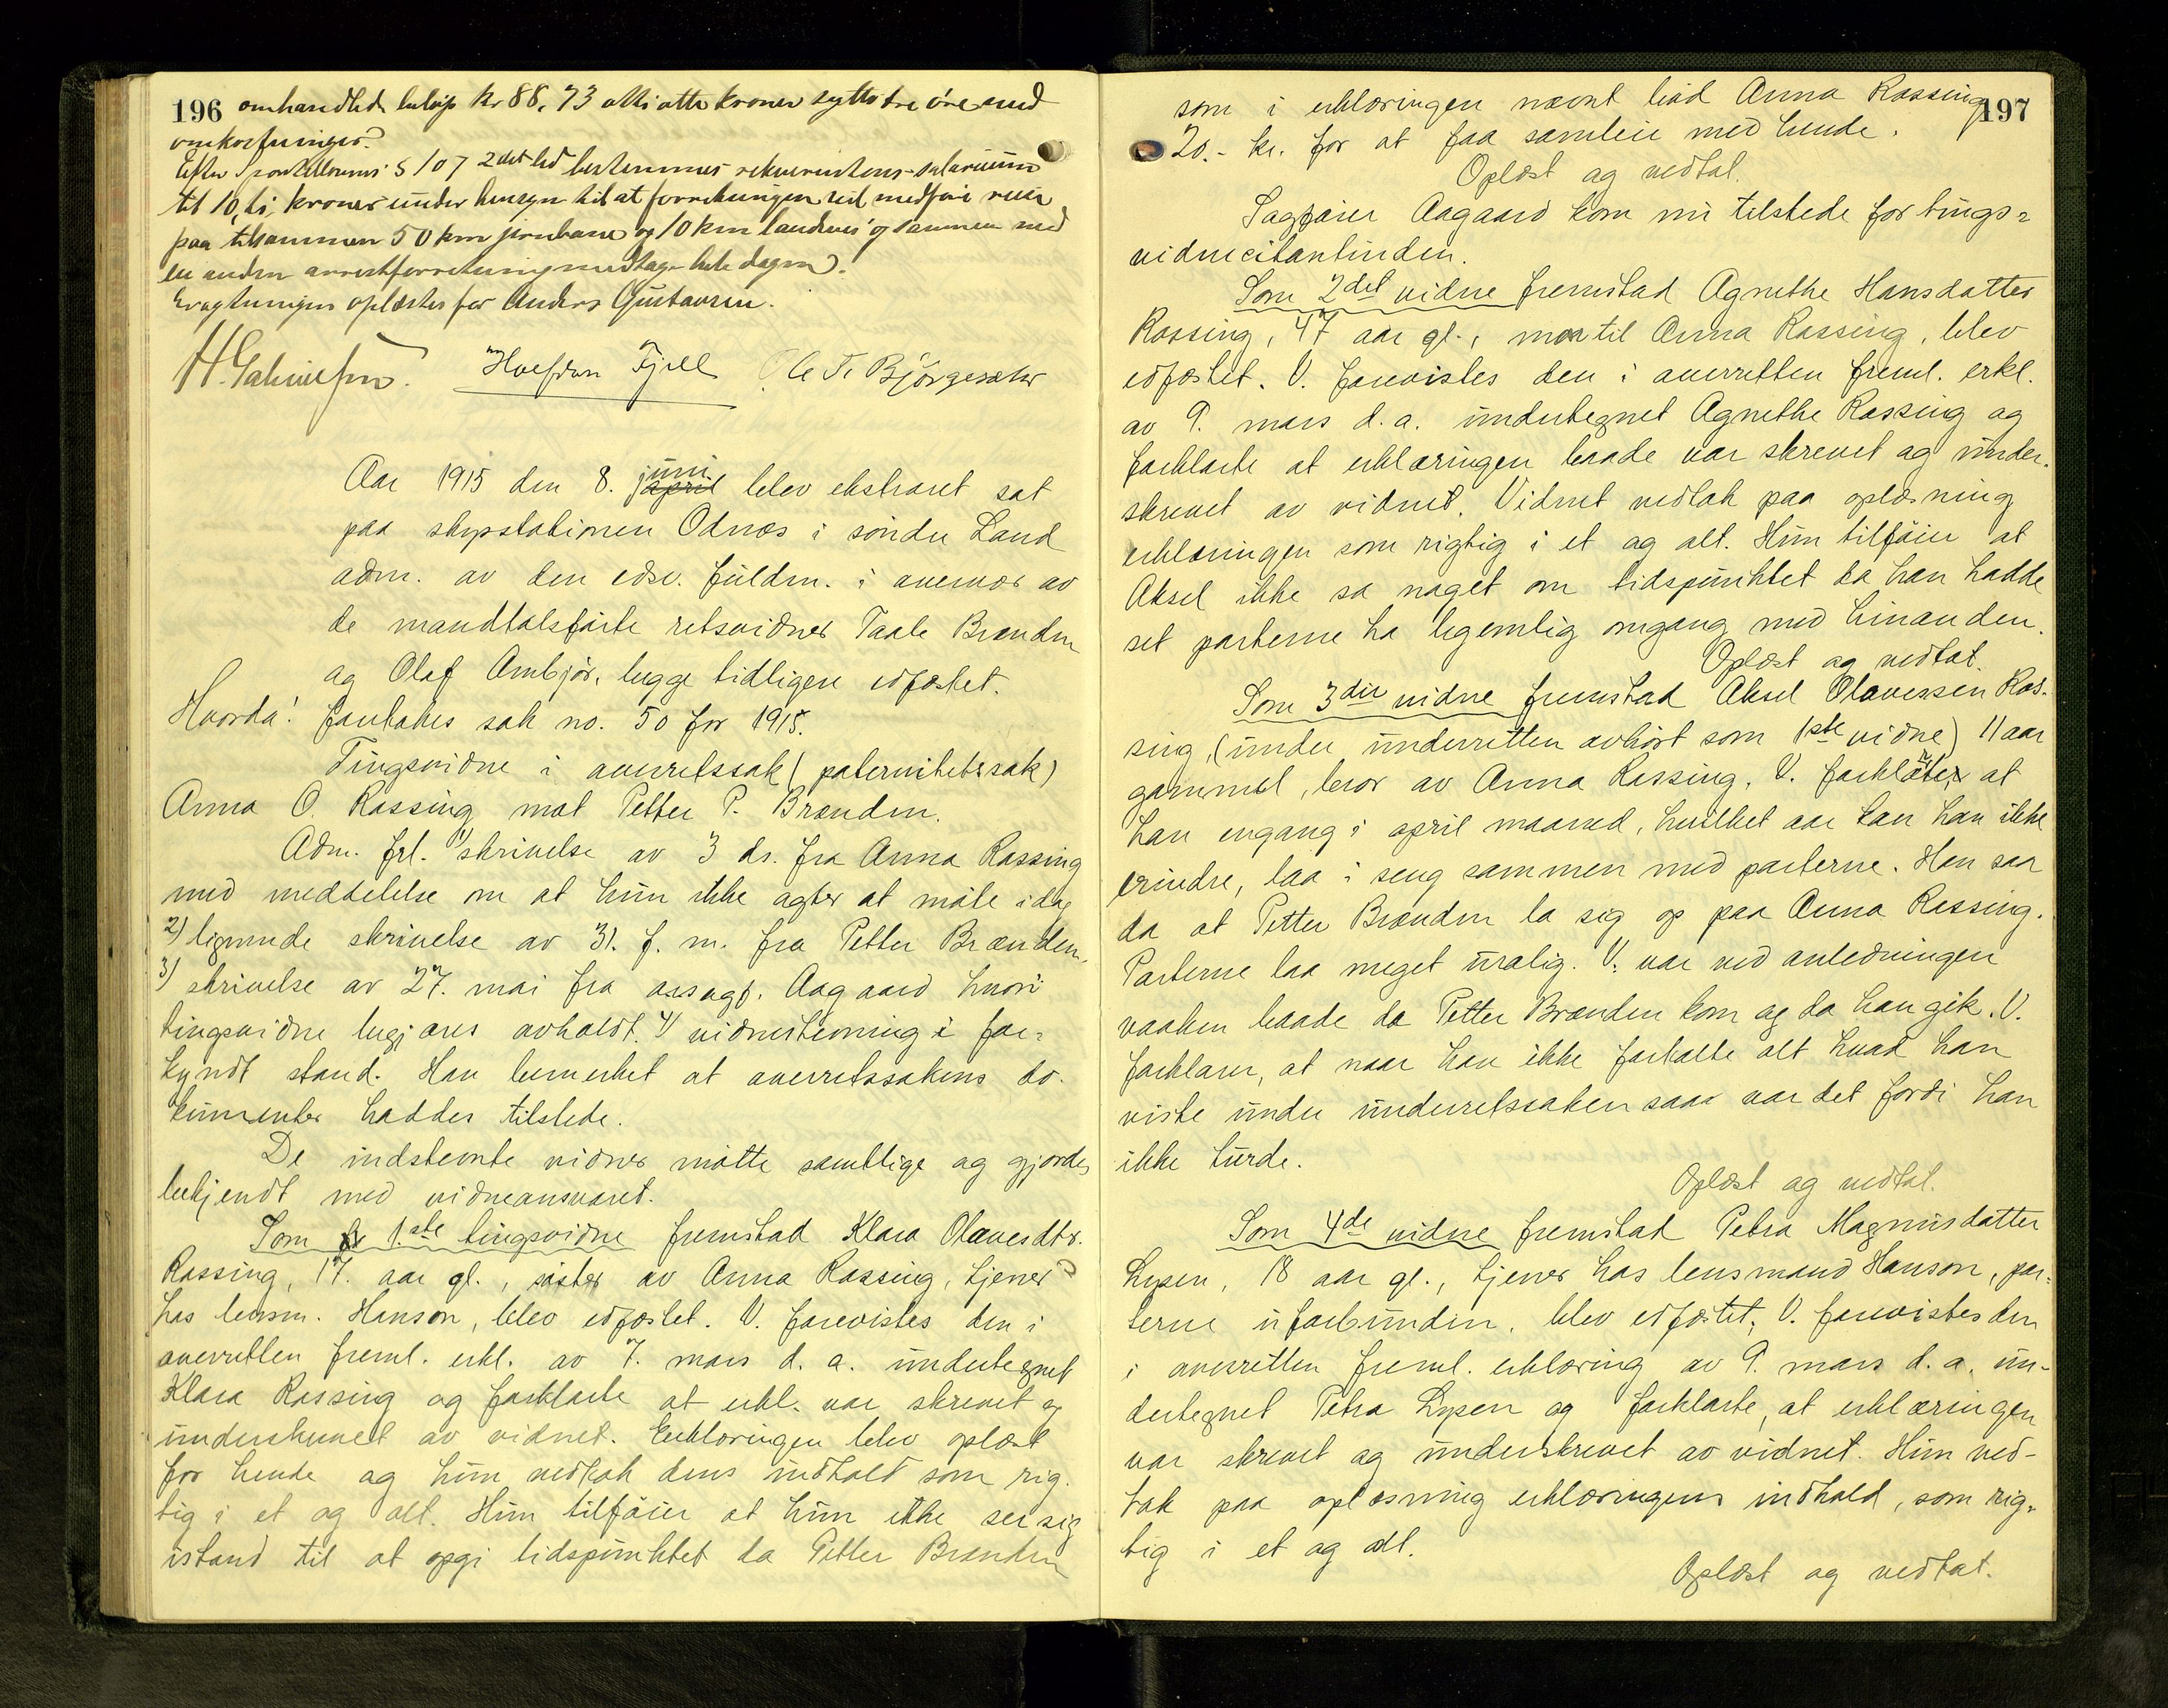 196 omhandlede beløp kr 88,73 otti otte kroner sytti tre øre med
omkostninger.
Efter Sportellovens § 107 2det led bestemmes rekvirentens salarium
til 10, ti, kroner under hensyn til at forretningen vil medføre reise
paa tilsammen 50 km jernbane og 10 km landevei og sammen med
en anden arrestforretning medtage hele dagen.
Eragtningen oplæstes for Anders Gustavsen.
Halvdan Fjell Ole T. Bjørgesæter
Aar 1915 den 8. april juni blev ekstraret sat
paa skysstationen Odnæs i søndre Land
adm. av den edsv. fuldm. i overvær av
de mandtalsførte retsvidner Taale Brænden
og Olaf Ambjør, begge tidligere edfæstet.
Hvorda! foretokes sak no. 50 for 1915.
Tingsvidne i overretssak (paternitetssak)
Anna O. Rossing mot Petter P. Brænden.
Adm. frl. 1) skrivelse av 3 ds. fra Anna Rossing
med meddelelse om at hun ikke agter at møte idag
2) lignende skrivelse av 31. f. m. fra Petter Brænden,
3) skrivelse av 27. mai fra orsagf. Aagaard hvori
tingsvidne begjæres avholdt. 4) vidnestevning i for-
kyndt stand. Han bemerket at overretssakens do-
kumenter haddes tilstede.
De indstevnte vidner møtte samtlige og gjordes
bekjendt med vidneansvaret.
Som 1.ste tingsvidne fremstod Klara Olavesdtr.
Rossing, 17. aar gl., søster av Anna Rossing, tjener
hos lensm. Hanson, blev edfæstet. V. forevistes den i
overretten freml. erkl. av 7. mars d. a. undertegnet
Klara Rossing og forklarte at erkl. var skrevet og
underskrevet av vidnet. Erklæringen blev oplæst
for hende og hun vedtok dens indhold som rig-
tig i et og alt. Hun tilføier at hun ikke ser sig
istand til at opgi tidspunktet da Petter Brænden
197
som i erklæringen nævnt bød Anna Rossing
20.- kr. for at faa samleie med hende.
Oplæst og vedtat.
Sagfører Aagaard kom nu tilstede for tings-
vidnecitantinden.
Som 2det vidne fremstod Agnethe Hansdatter
Rossing, 47 aar gl., mor til Anna Rossing, blev
edfæstet. V. forevistes den i overretten freml. erkl.
av 9. mars d. a. undertegnet Agnethe Rossing og
forklarte at erklæringen baade var skrevet og under-
skrevet av vidnet. Vidnet vedtok paa oplæsning
erklæringen som rigtig i et og alt. Hun tilføier at
Aksel ikke sa noget om tidspunktet da han hadde
set parterne ha legemlig omgang med hinanden.
Oplæst og vedtat.
Som 3die vidne fremstod Aksel Olavessen Ros-
sing, (under underretten avhørt som 1ste vidne) 11 aar
gammel, bror av Anna Rossing. V. forklarer at
han engang i april maaned, hvilket aar kan han ikke
erindre, laa i seng sammen med parterne. Han saa
da at Petter Brænden la sig op paa Anna Rossing.
Parterne laa meget urolig. V. var ved anledningen
vaaken baade da Petter Brænden kom og da han gik. V.
forklarer, at naar han ikke fortalte alt hvad han
viste under underretssaken saa var det fordi han
ikke turde.
Oplæst og vedtat.
Som 4de vidne fremstod Petra Magnusdatter
Lysen, 18 aar gl., tjener hos lensmand Hanson, par-
terne uforbunden, blev edfæstet. V. forevistes den
i overretten freml. erklæring av 9. mars d. a. un-
dertegnet Petra Lysen og forklarte, at erklæringen
var skrevet og underskrevet av vidnet. Hun ved-
tok paa oplæsning erklæringens indhold, som rig-
tig i et og alt.
Oplæst og vedtat.